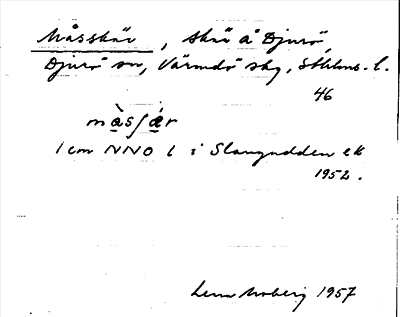 Måsskär, skär å Djurö,
Djurö sn, Värmdö skg, Sthlms. l.
46
mà̱sʃä̱r
1 cm NNO l i Slangudden ek
1952.
Lena Moberg 1957